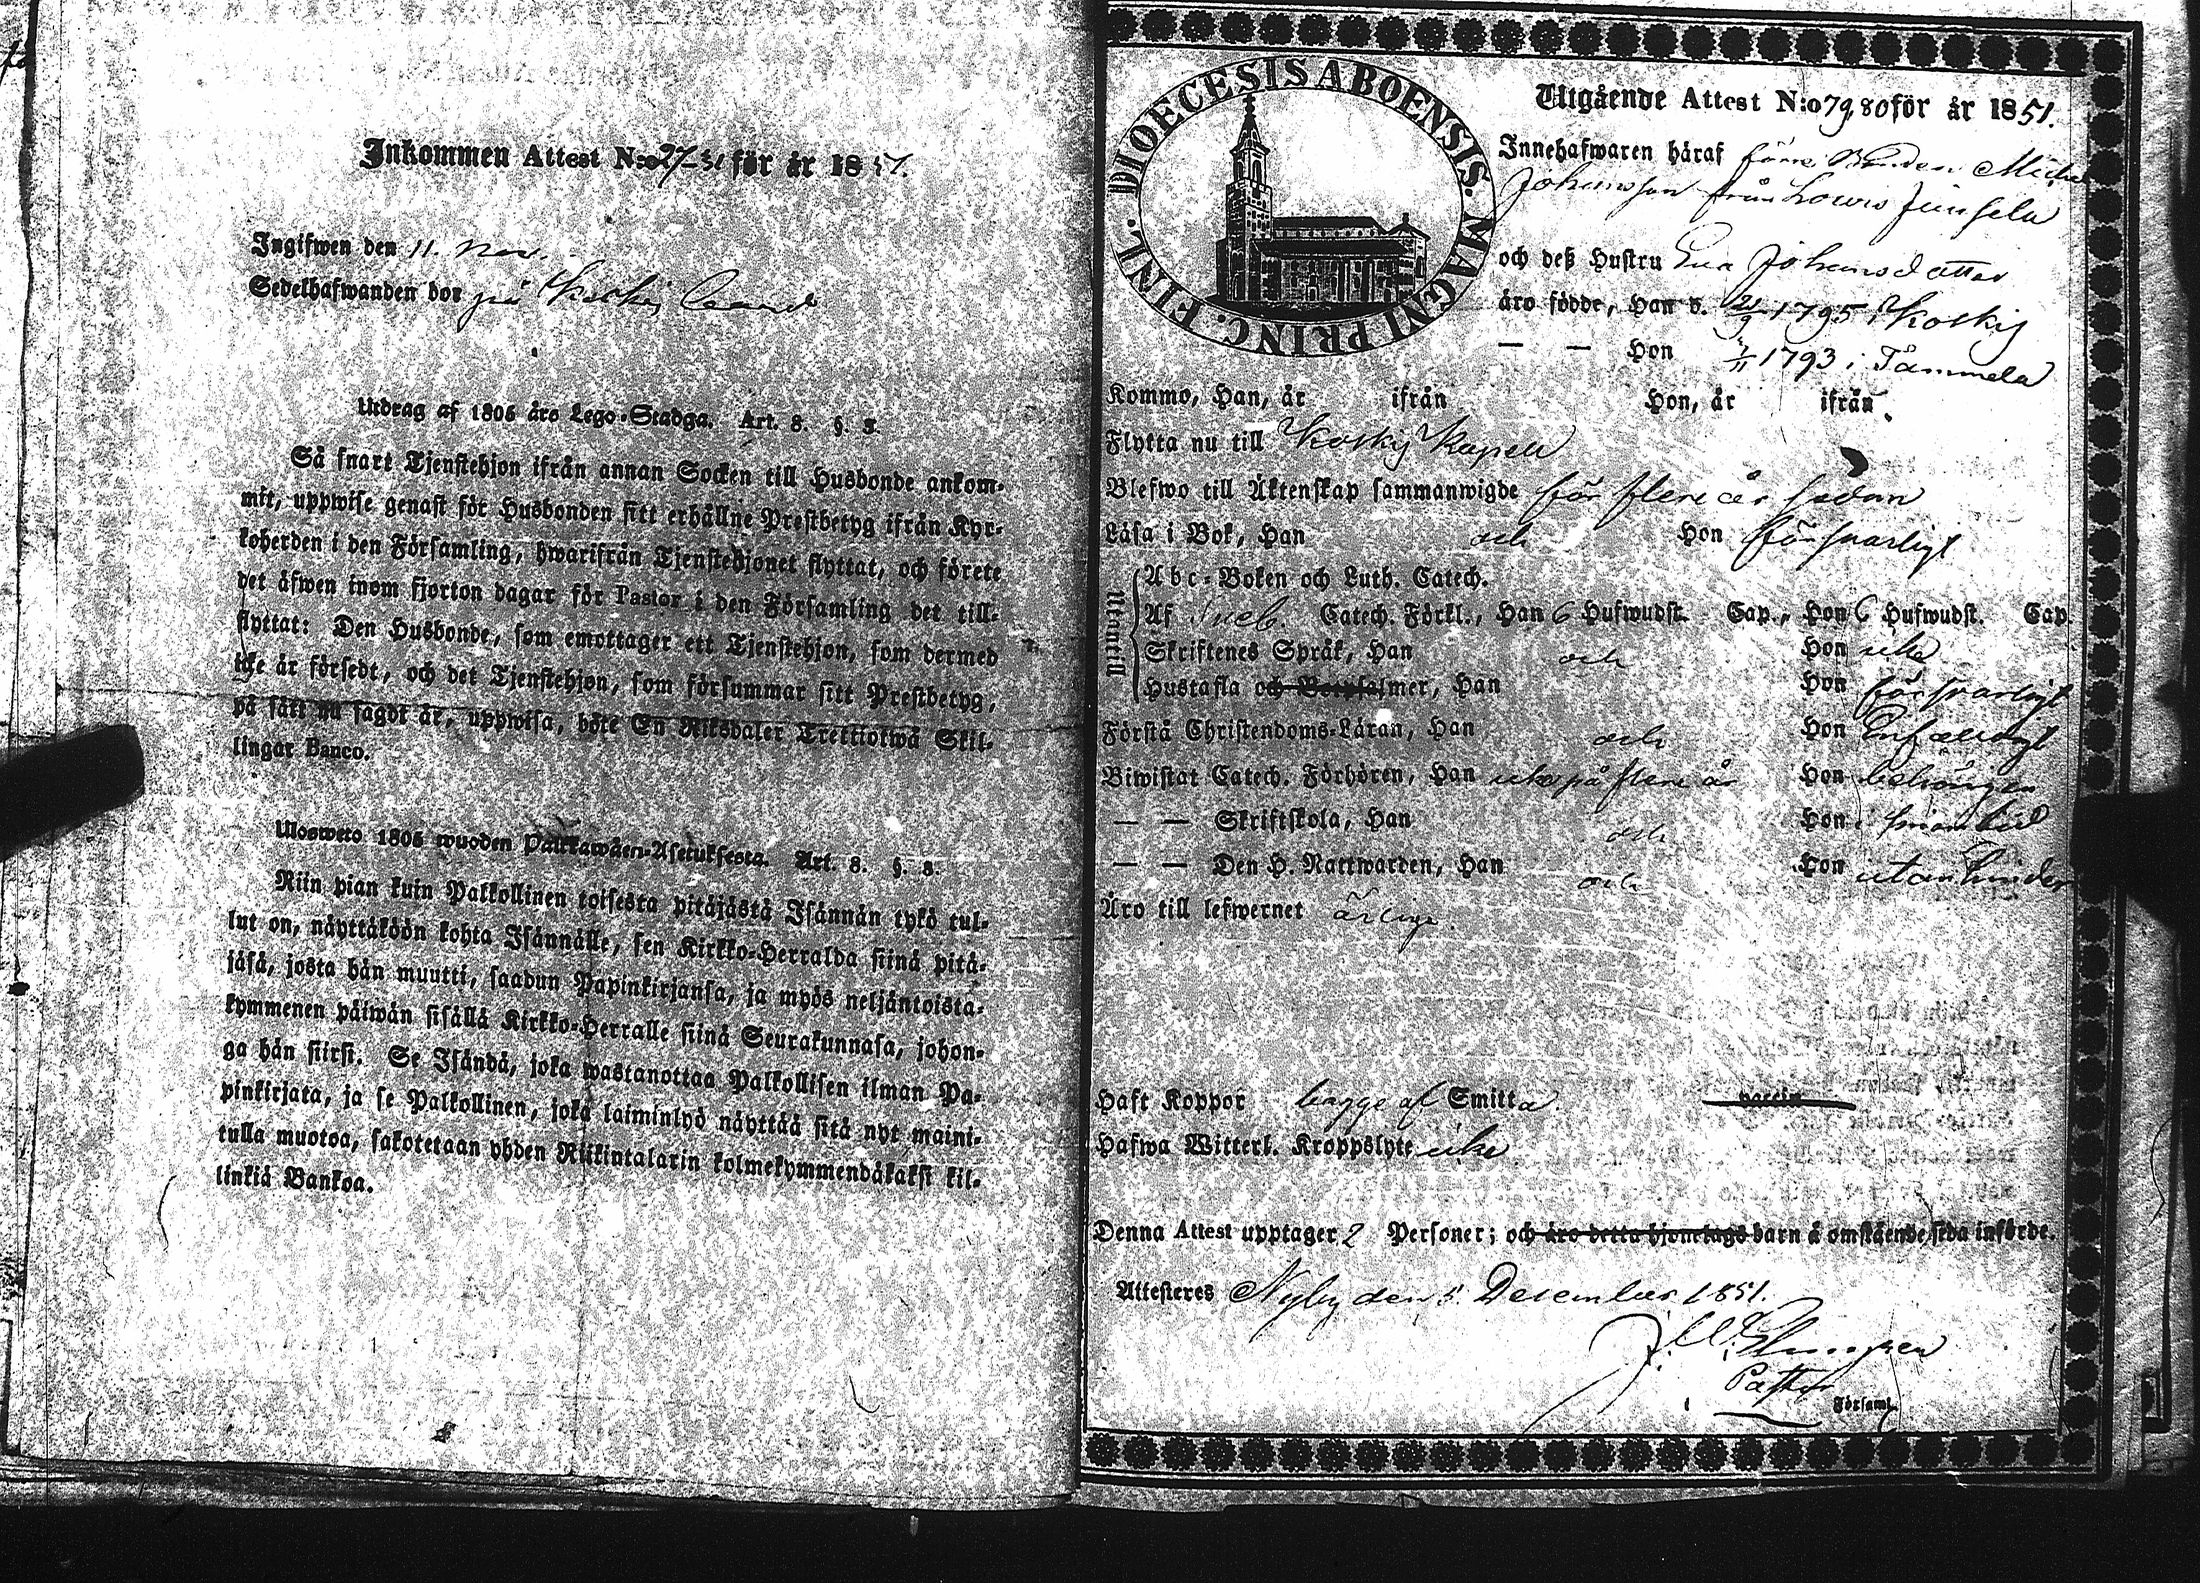 Inkommen Attest N:o 27-51 för år 1851.
Ingifwen den 11. Nov.
Sedelhafwanden bor på Koskis
Utdrag af 1805 års Lego-Stadga. Art. 8. §. 3.
Så snart Tjenstehjon ifrån annan Socken till Husbonde ankom-
mit, uppwise genast för Husbonden sitt erhållne Prestbetyg ifrån Kyr-
koherden i den Församling, hwarifrån Tjenstehjonet flyttat, och förete
det äfwen inom fjorton dagar för Pastor i den Församling det till-
flyttat: Den Husbonde, som emottager ett Tjenstehjon, som dermed
icke är försedt, och det Tjenstehjon, som försummar sitt Prestbetyg,
på sätt nu sagdt är, uppwisa, böte En Riksdaler Trettiotwå Skil-
lingar Banco.
Ulosweto 1805 wuoden Palkkawäen-Asetuksesta. Art. 8. §. 3.
Niin pian kuin Palkollinen toisesta pitäjästä Isännän tykö tul-
lut on, näyttäköön kohta Isännälle, sen Kirkko-Herralda siinä pitä-
jäsä, josta hän muutti, saadun Papinkirjansa, ja myös neljäntoista-
kymmenen päiwän sisällä Kirkko-Herralle siinä Seurakunnasa, johon-
ga hän siirsi. Se Isändä, joka wastanottaa Palkollisen ilman Pa-
pinkirjata, ja se Palkollinen, joka laiminlyö näyttää sitä nyt maini-
tulla muotoa, sakotetaan yhden Riikintalarin kolmekymmendäkaksi kil-
linkiä Bankoa.
DIOECESIS ABOENSIS. MAGNI PRINC. FINL.
Utgående Attest N:o 79,80 för år 1851.
Innehafwaren häraf förre Bonden
Johansson från
och deß Hustru Eva Johansdotter
äro födde, Han d. 21/9 1795 i Koskis
— — Hon 1793 i Tammela
Kommo, Han, år ifrån Hon, år ifrån
Flytta nu till Koskis Kapell
Blefwo till Äktenskap sammanwigde för flere år sedan
Läsa i Bok, Han och Hon försvarligt
Utantill
Abc-Boken och Luth. Catech.
Af Sveb. Catech. Förkl., Han 6 Hufwudst. Cap., Hon 6 Hufwudst. Cap.
Skriftenes Språk, Han och Hon icke
Hustafla och Botpsalmer, Han Hon försvarligt
Förstå Christendoms-Läran, Han och Hon Enfaldigt
Biwistat Catech. Förhören, Han icke på flere år Hon behörigen
— — Skriftskola, Han och Hon i sin tid
— — Den H. Nattwarden, Han och Hon utan hinder
Äro till lefwernet ärlige
Haft Koppor bägge af Smitta vaccin
Hafwa Witterl. Kroppslyte icke
Denna Attest upptager 2 Personer; och äro detta hjonelags barn å omstående sida införde.
Attesteres Nyby den 5 December 1851.
Pastor
i Församl.